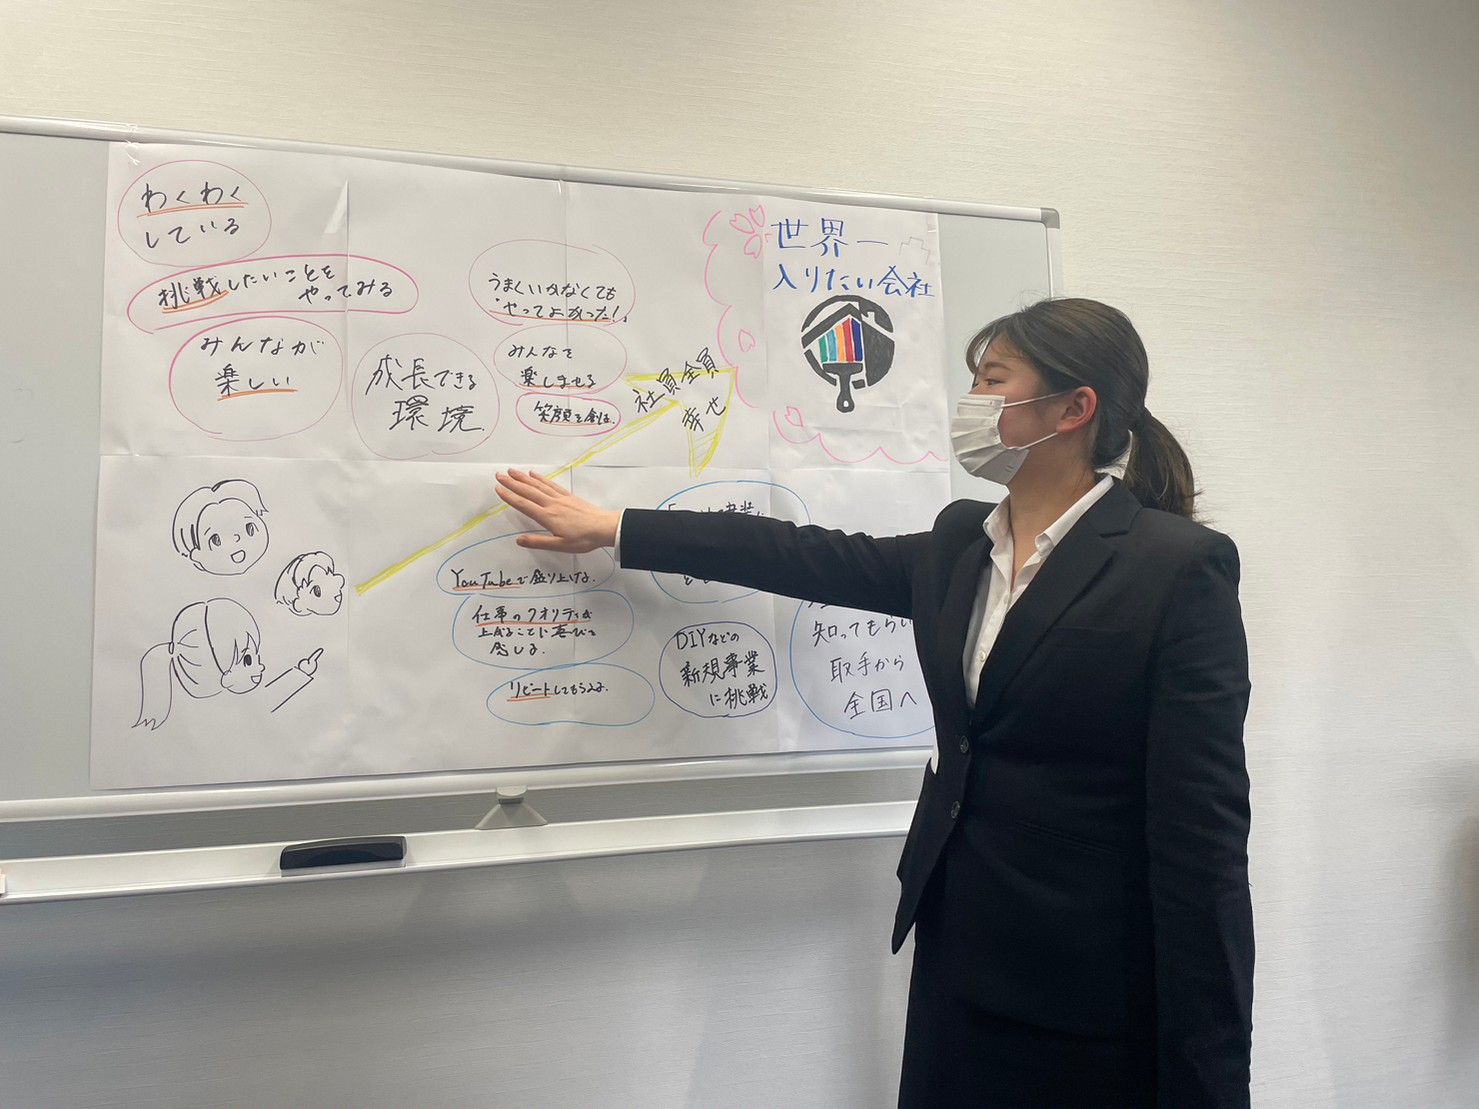 わくわく
している
挑戦したいことを
やってみる
みんなが
楽しい
成長できる
環境
うまくいかなくても
やってよかった!
みんなを
楽しませる
笑顔を創造
社員全員
幸せ
世界一
入りたい会社
YouTubeで盛り上げる
仕事のクオリティを
上げることに喜びを
感じる
リピートしてもらえる
DIYなどの
新規事業
に挑戦
知ってもらい
取手から
全国へ